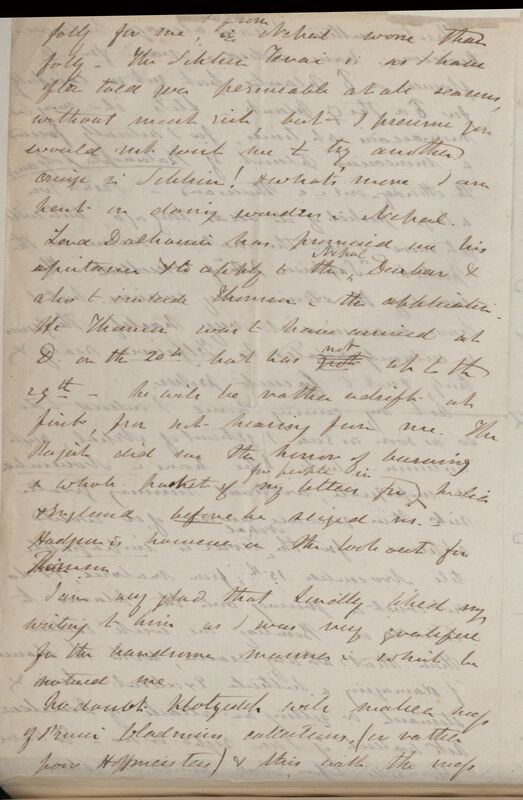 folly for me, in Nepal worse than
folly – The Sikkim Terai is as I have
often told you permeable at all seasons,
without much risk, but I presume you
would not wish me to try another
cruize in Sikkim! & what's more I am
bent on doing wonders in Nepal.
Lord Dalhousie has promised me his
assistance & to apply to the Nepal Durbar &
also to include Thomson in the application.
He Thomson was to have arrived at
D on the 20th but has not up to the
29th – he will be rather adrift at
first, from not hearing from me. The
Rajah did me the honor of burning
a whole packet of my letters for people in India
& England before he seized us.
Hodgson is however on the look out for
Thomson
I am very glad that Lindley liked my
writing to him as I was very gratified
for the handsome manner in which he
noticed me.
No doubt Klotzsch will make a mess
of Prince Waldemars collections, (or rather
poor Hoffmeisters) & this with the mess